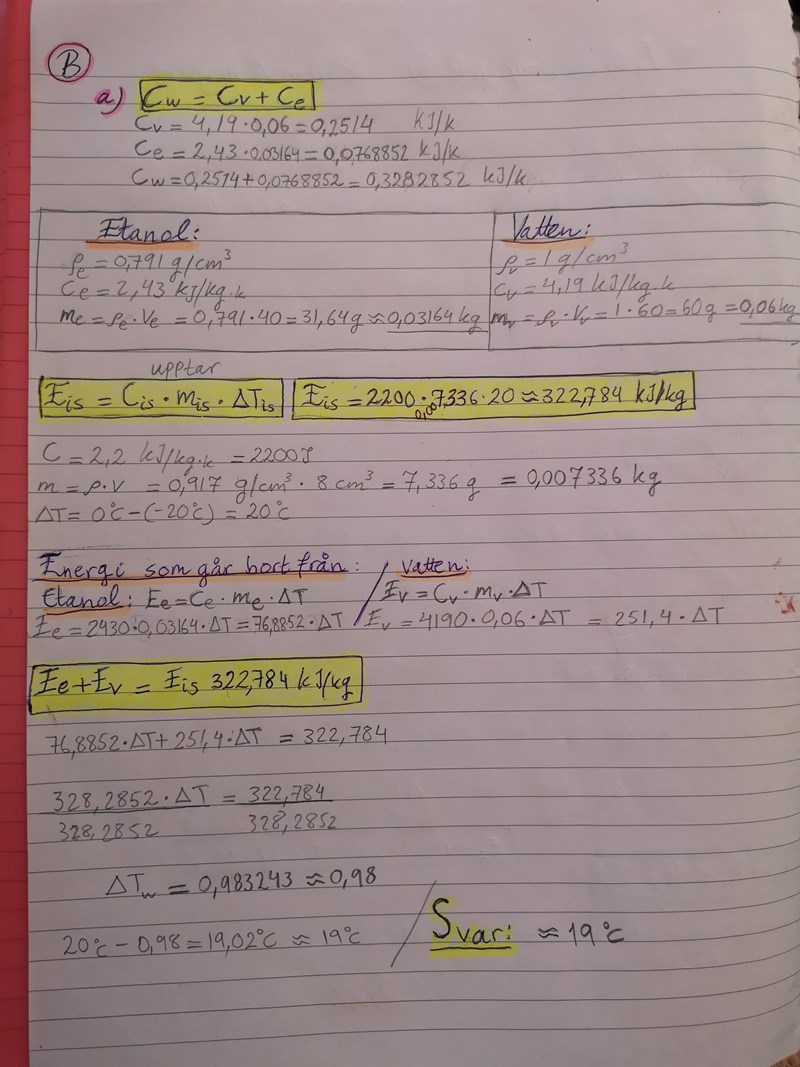 B
a) Cw = Cv + Ce
Cv = 4,19·0,06 = 0,2514 kJ/k
Ce = 2,43·0,03164 = 0,0768852 kJ/k
Cw = 0,2514+0,0768852 = 0,3282852 kJ/k
Etanol:
ρe = 0,791 g/cm³
Ce = 2,43 kJ/kg.k
me = ρe·Ve = 0,791·40 = 31,64g ≈ 0,03164 kg
Vatten:
ρv = 1 g/cm³
Cv = 4,19 kJ/kg.k
mv = ρv·Vv = 1·60 = 60g = 0,06 kg
upptar
Eis = Cis · mis · ΔTis
Eis = 2200·0,007336·20 ≈ 322,784 kJ/kg
C = 2,2 kJ/kg.k = 2200J
m = ρ·v = 0,917 g/cm³ · 8 cm³ = 7,336 g = 0,007336 kg
ΔT = 0°C - (-20°C) = 20°C
Energi som går bort från: / Vatten:
Etanol: Ee = Ce · me · ΔT / Ev = Cv · mv · ΔT
Ee = 2430·0,03164·ΔT = 76,8852·ΔT / Ev = 4190·0,06·ΔT = 251,4·ΔT
Ee + Ev = Eis 322,784 kJ/kg
76,8852·ΔT + 251,4·ΔT = 322,784
328,2852·ΔT = 322,784
328,2852 328,2852
ΔTw = 0,983243 ≈ 0,98
20°C - 0,98 = 19,02°C ≈ 19°C / Svar: ≈ 19°C